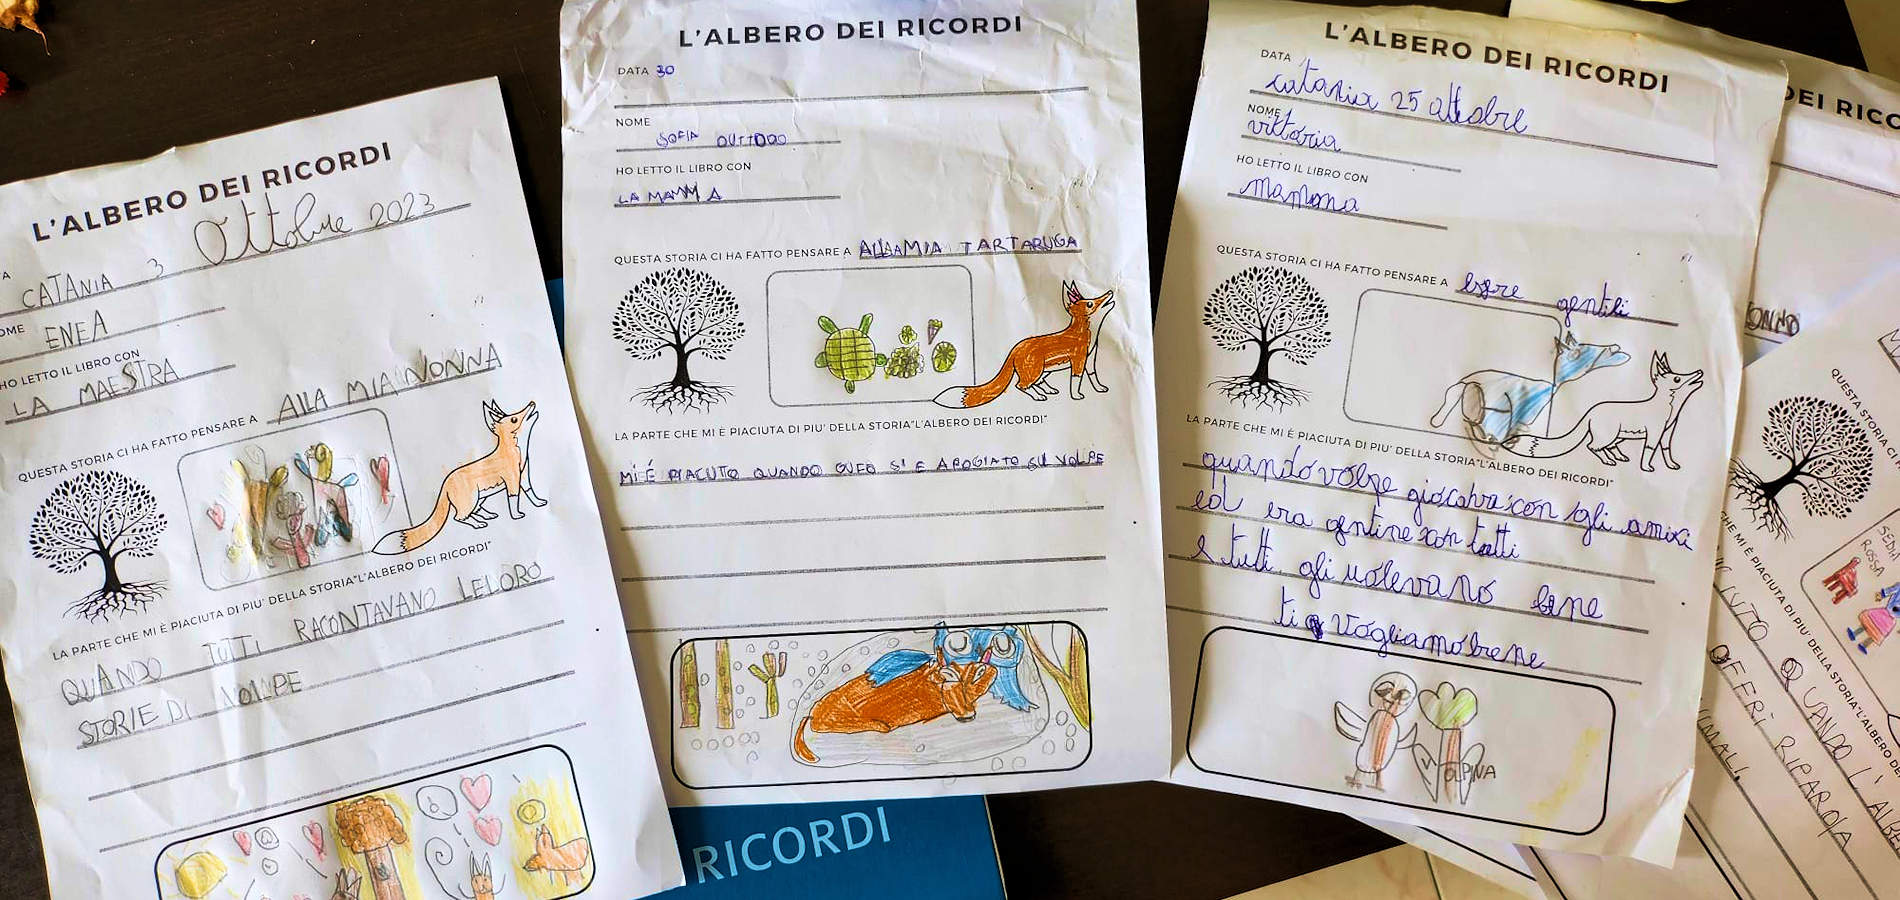 L'ALBERO DEI RICORDI
CATANIA 3 Ottobre 2023
ENEA
HO LETTO IL LIBRO CON
LA MAESTRA
QUESTA STORIA CI HA FATTO PENSARE A ALLA MIA NONNA
LA PARTE CHE MI È PIACIUTA DI PIU' DELLA STORIA"L'ALBERO DEI RICORDI"
QUANDO TUTTI RACONTAVANO LELORO
STORIE DI VOLPE
L'ALBERO DEI RICORDI
DATA 30
NOME
SOFIA
HO LETTO IL LIBRO CON
LA MAMMA
QUESTA STORIA CI HA FATTO PENSARE A ALLA MIA TARTARUGA
LA PARTE CHE MI È PIACIUTA DI PIU' DELLA STORIA"L'ALBERO DEI RICORDI"
MI É PIACUTO QUANDO GUFO S'E APOGIATO SU VOLPE
L'ALBERO DEI RICORDI
DATA
catania 25 ottobre
NOME
vittoria
HO LETTO IL LIBRO CON
mamma
QUESTA STORIA CI HA FATTO PENSARE A essere gentili
LA PARTE CHE MI È PIACIUTA DI PIU' DELLA STORIA"L'ALBERO DEI RICORDI"
quando volpe giocava con gli amici
ed era gentine con tutti
e tutti gli volevano bene
ti vogliamo bene
VOLPINA
DEI RICO
QUESTA STORIA CI HA FATTO
ROSSA
CHE MI È PIACIUTA DI PIU' DELLA STORIA"L'ALBERO DE
QUANDO L'ALBE
OFFRÌ RIPAROIA
RICORDI